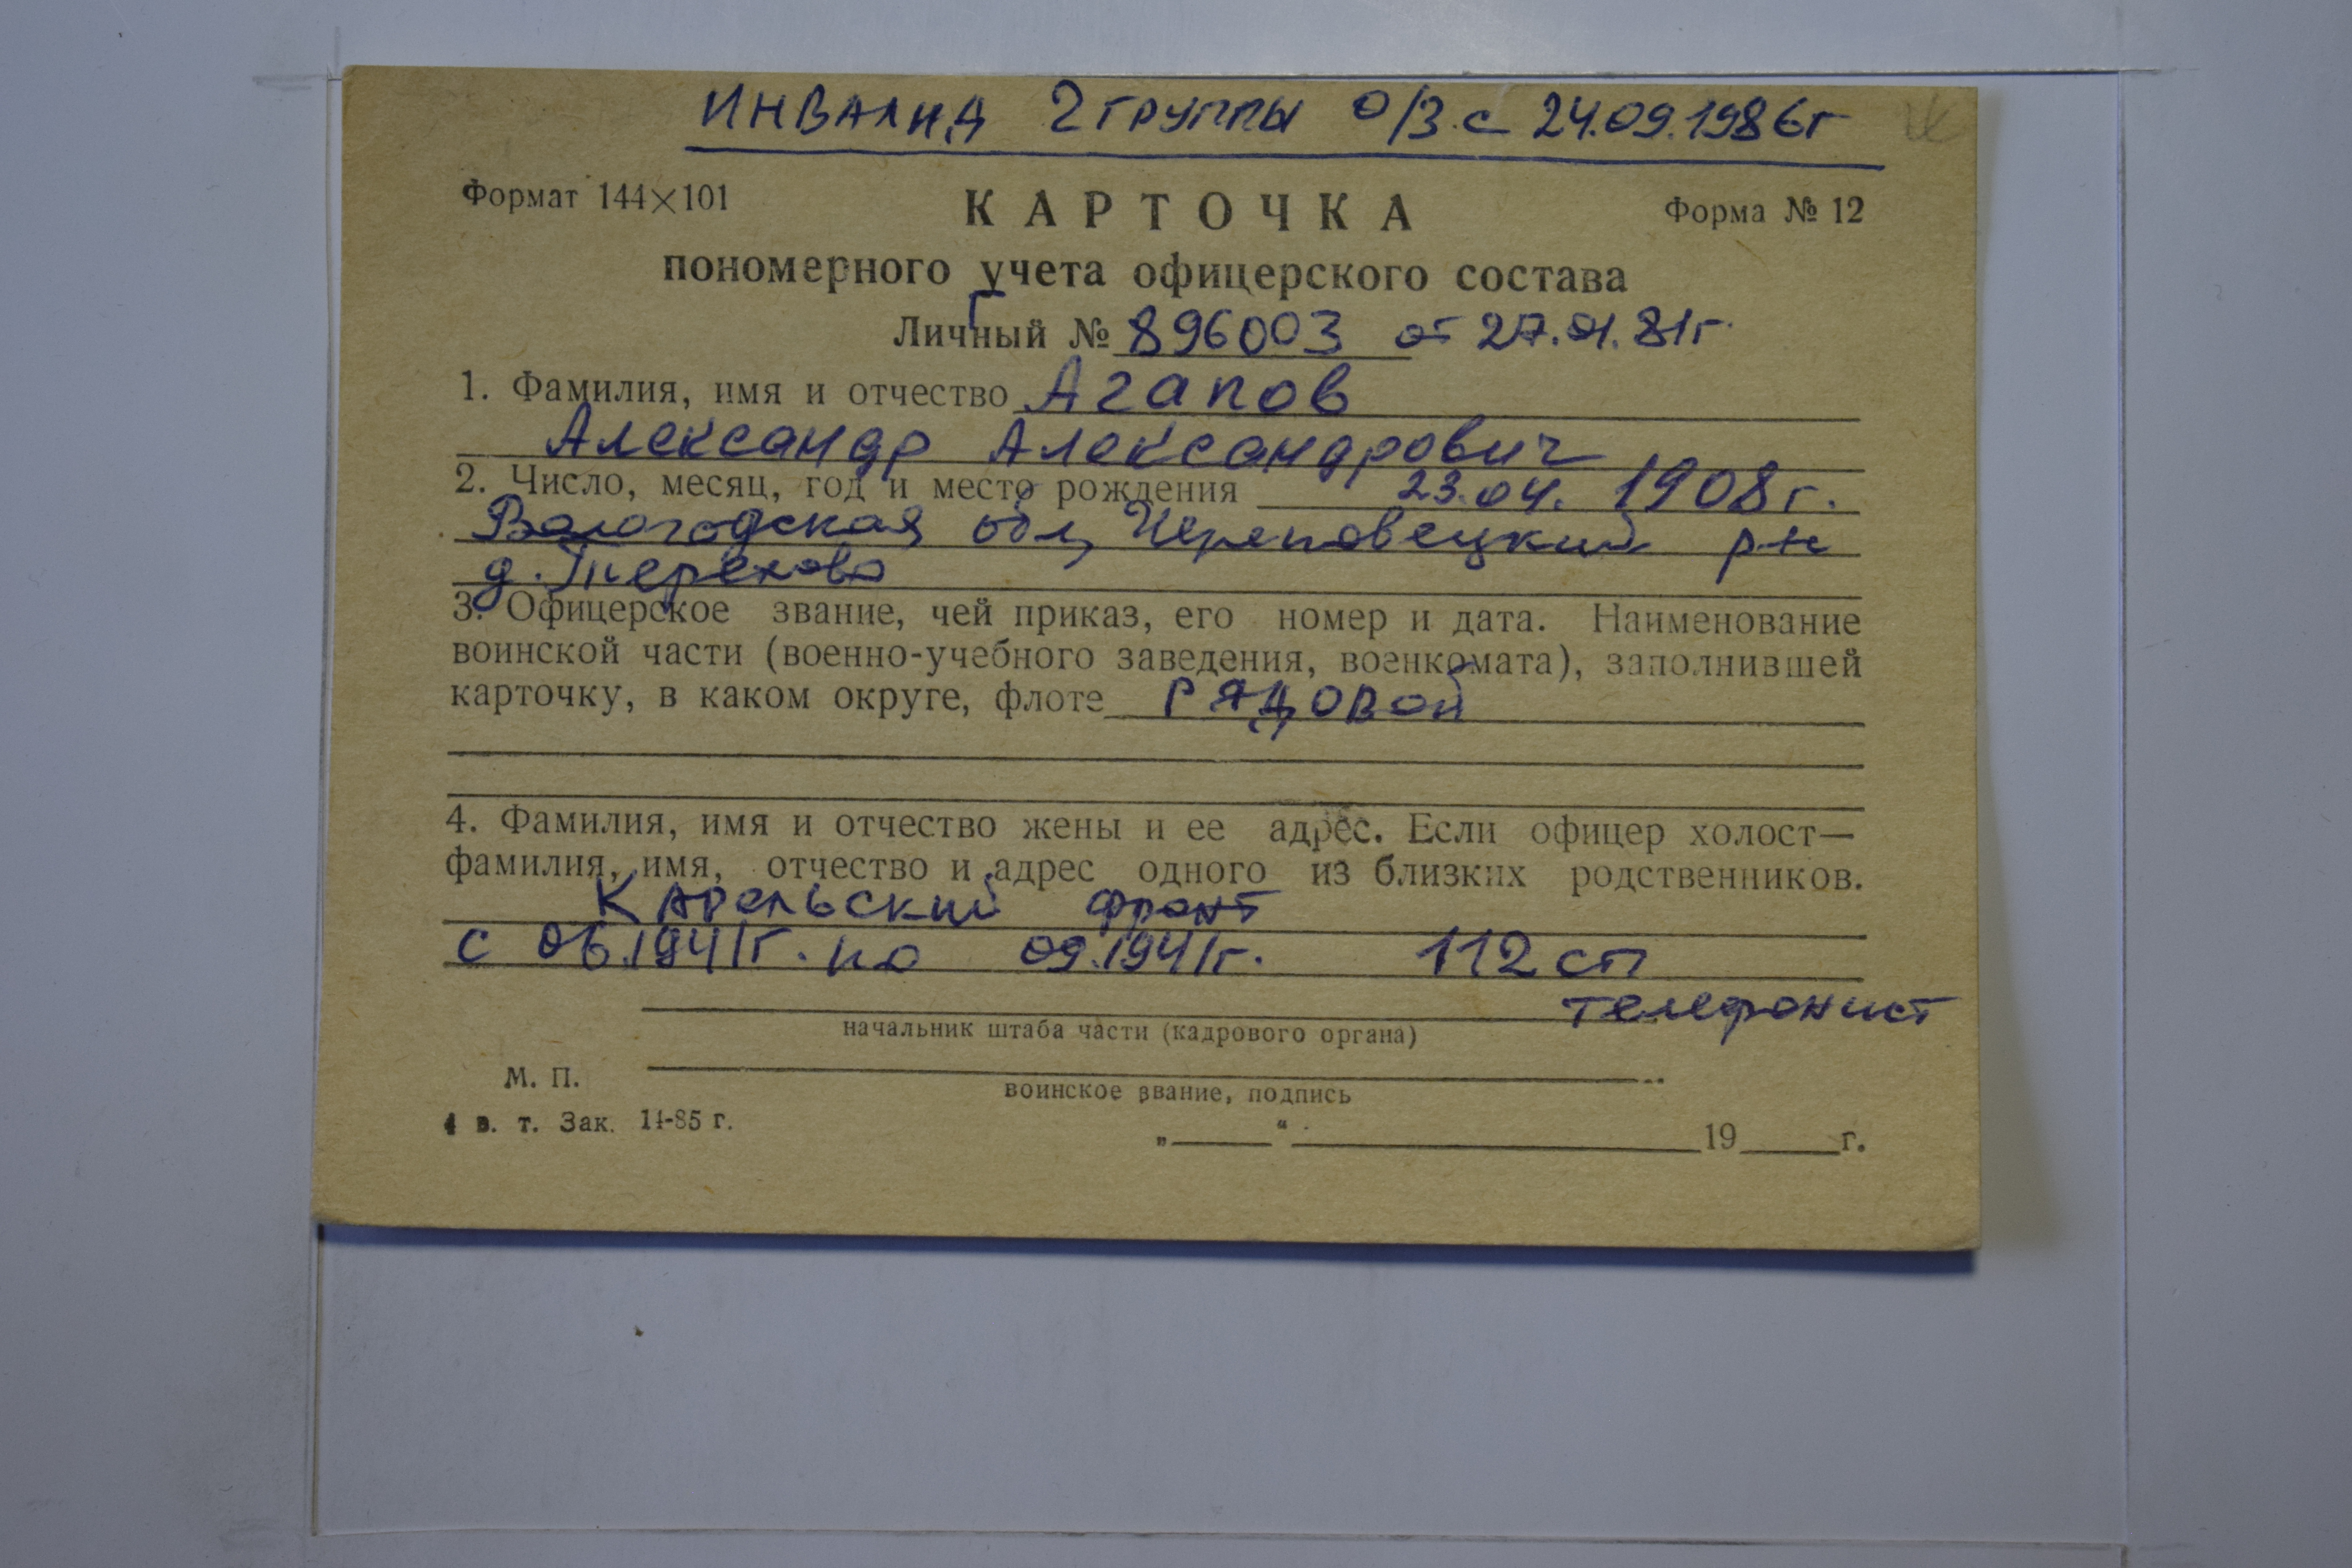 ИНВАЛИД 2 ГРУППЫ О/З с 24.09.1986г
Формат 144×101 КАРТОЧКА Форма № 12
пономерного учета офицерского состава
Личный № Г 896003 от 27.01.81г.
1. Фамилия, имя и отчество Агапов
Александр Александрович
2. Число, месяц, год и место рождения 23.04. 1908г.
Вологодская обл, Череповецкий р-н
д. Терехово
3. Офицерское звание, чей приказ, его номер и дата. Наименование
воинской части (военно-учебного заведения, военкомата), заполнившей
карточку, в каком округе, флоте РЯДОВОЙ
4. Фамилия, имя и отчество жены и ее адрес. Если офицер холост—
фамилия, имя, отчество и адрес одного из близких родственников.
Карельский фронт
с 06.1941г. по 09.1941г. 112 сп
телефонист
начальник штаба части (кадрового органа)
М. П.
воинское звание, подпись
4 в. т. Зак. 14-85 г.
„ “ 19 г.